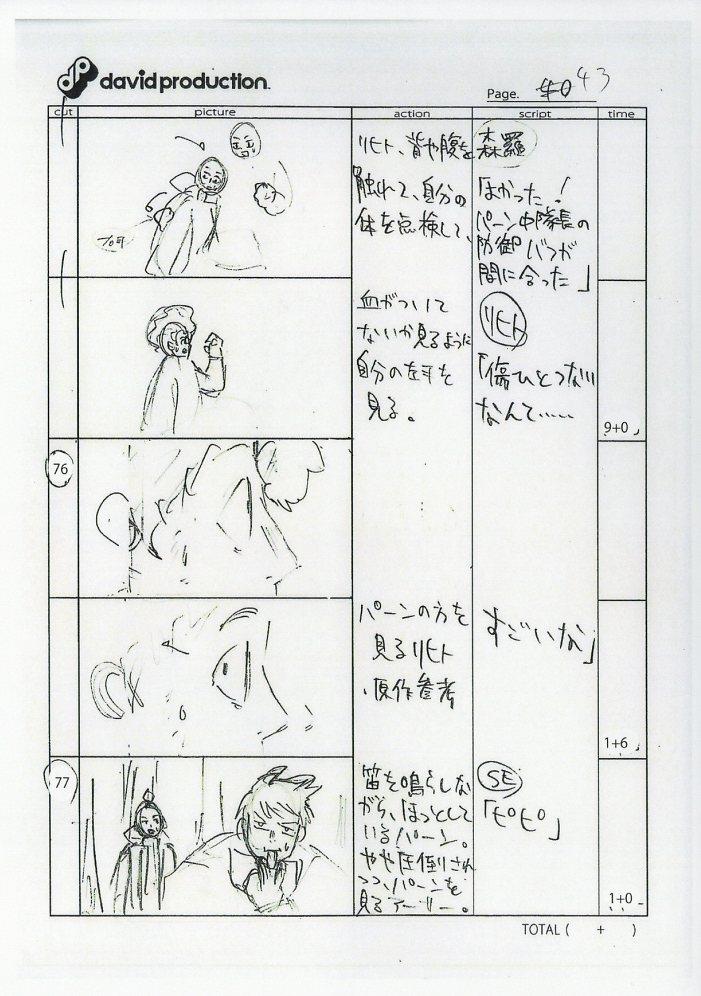 david production.
Page. 40 43
cut picture action script time
リヒト、背や腹を
触れて、自分の
体を点検して、
森羅
「よかった!
パーン中隊長の
防御
間に合った」
血がついて
ないか見るように
自分の左手を
見る。
リヒト
「傷ひとつない
なんて……
9+0
76
パーンの方を
見るリヒト
原作参考
すごいな」
1+6
77
笛を鳴らしな
がら、ほっとして
いるパーン。
やや圧倒され
つつ、パーンを
見る
SE
「ピピ」
1+0
TOTAL ( + )